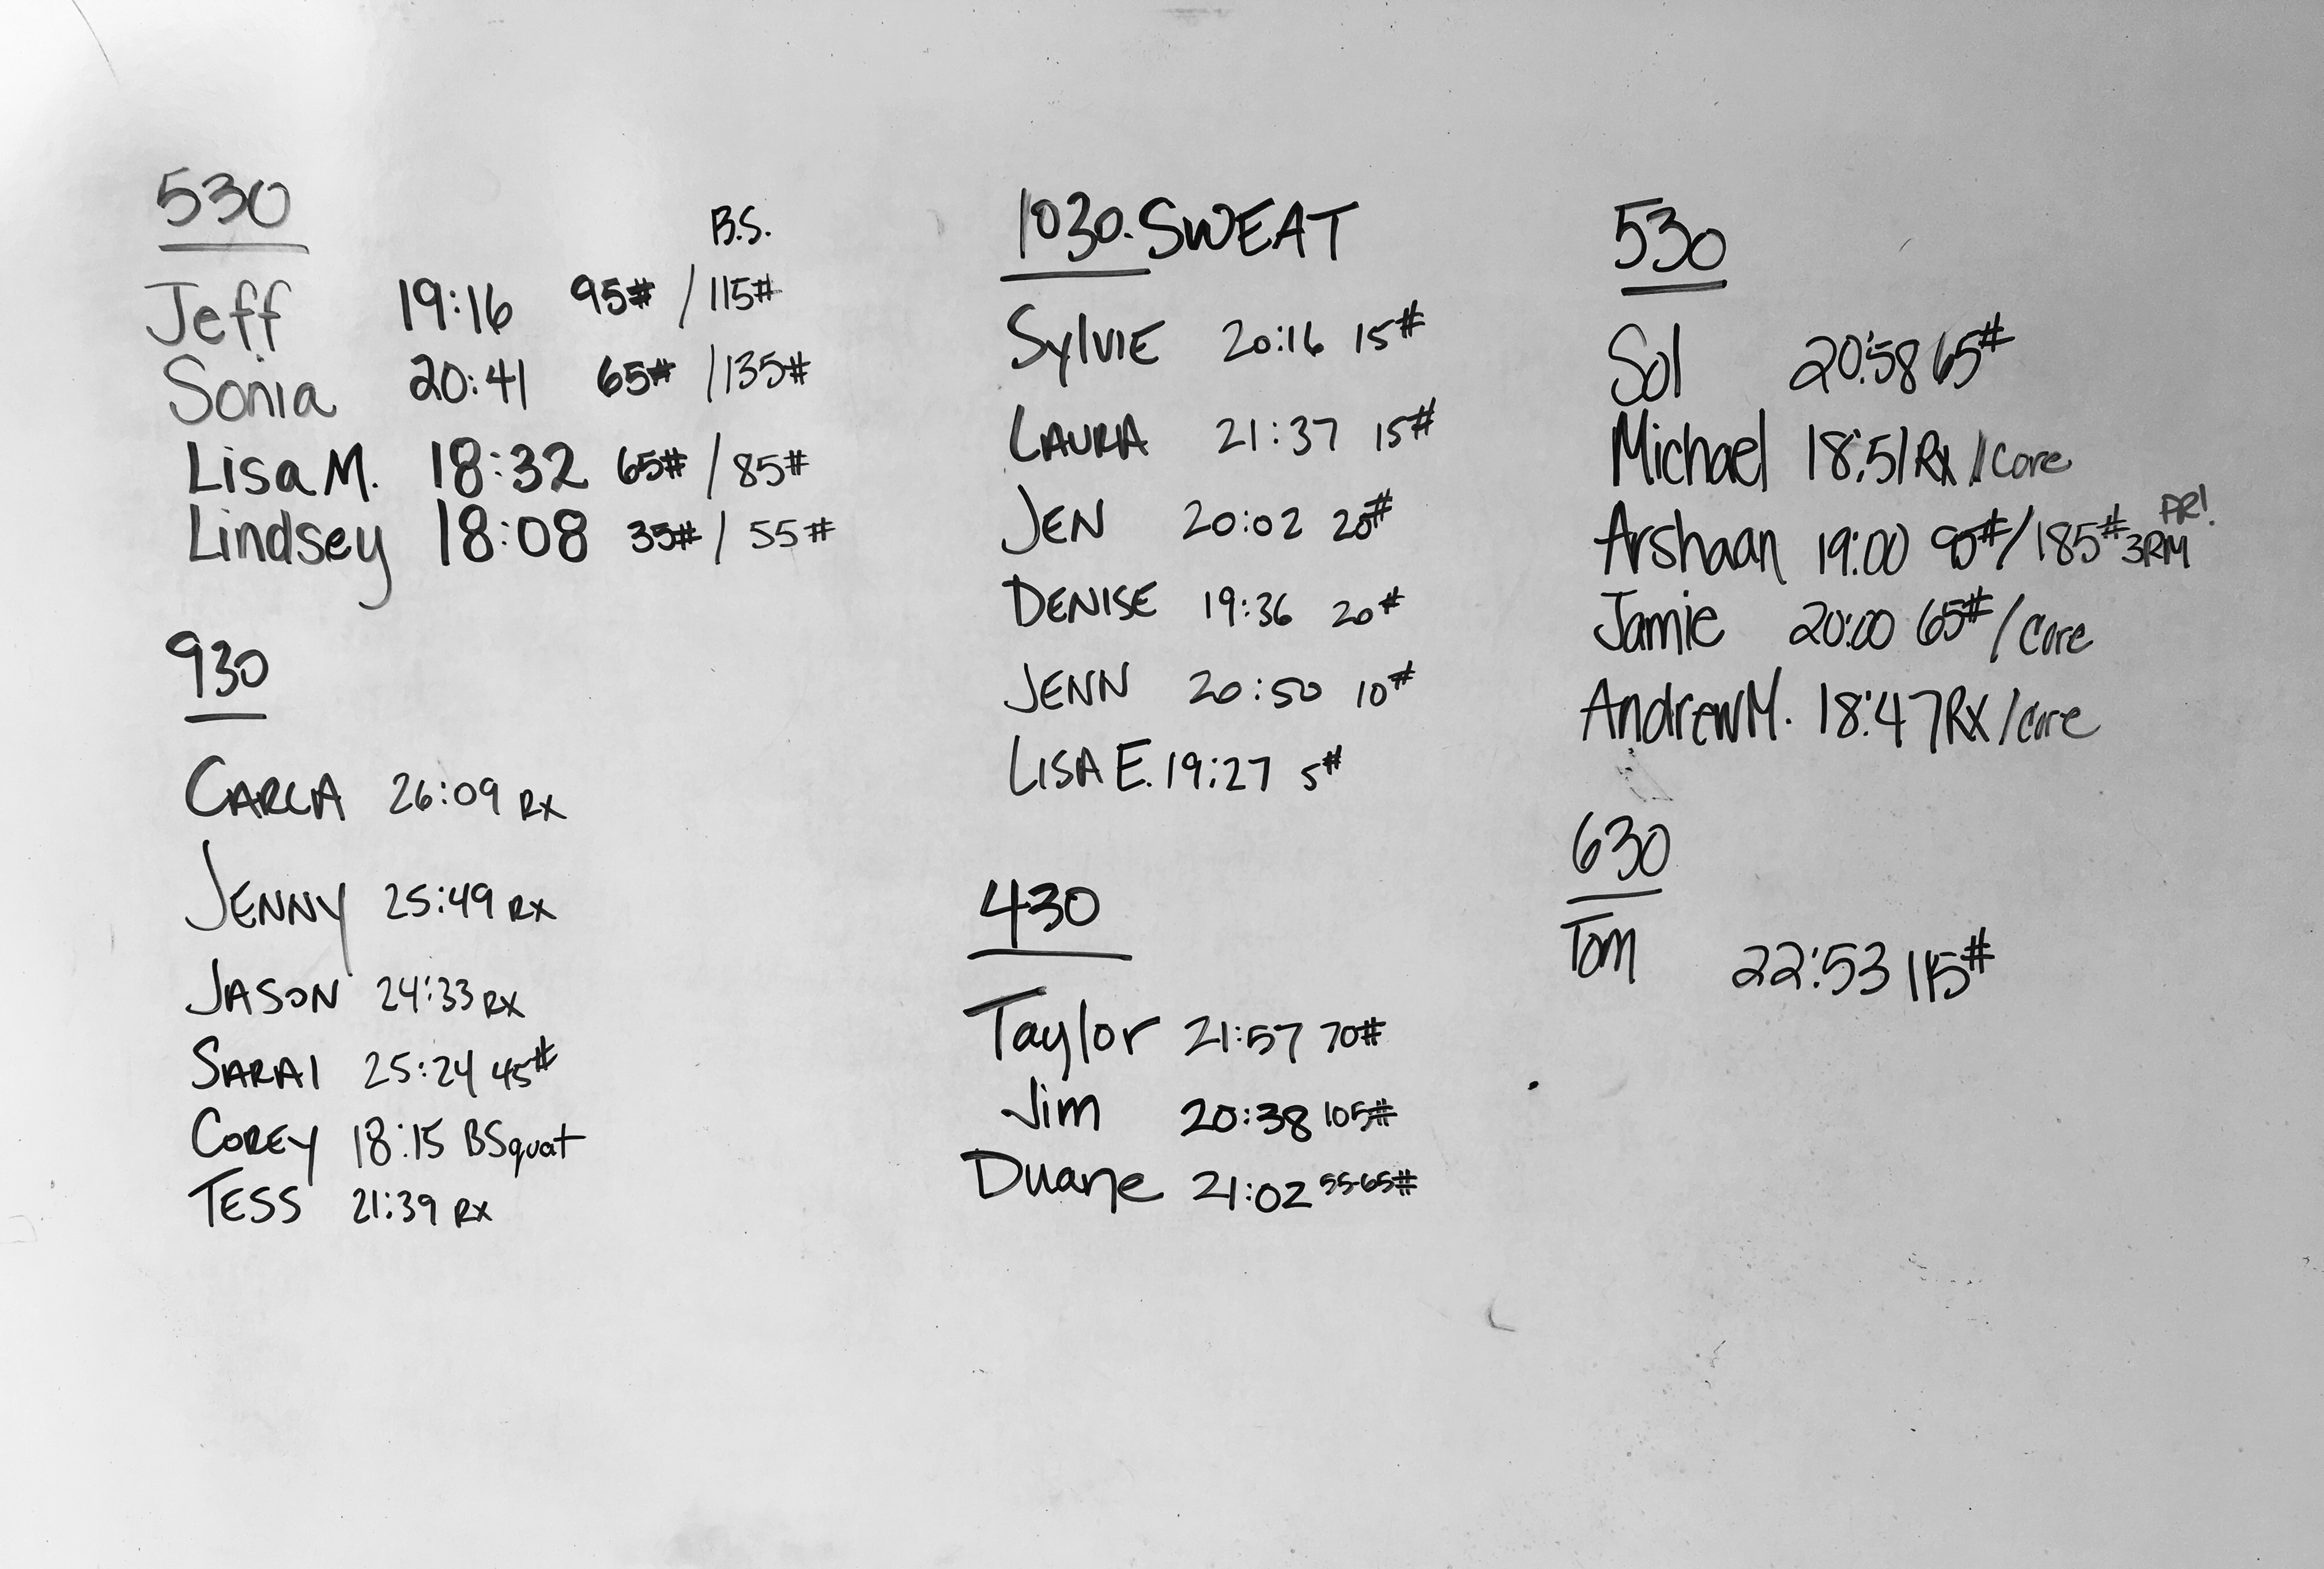 530
B.S.
Jeff 19:16 95# / 115#
Sonia 20:41 65# / 135#
Lisa M. 18:32 65# / 85#
Lindsey 18:08 35# / 55#
930
CARLA 26:09 RX
JENNY 25:49 RX
JASON 24:33 RX
SARAI 25:24 45#
COREY 18:15 BSquat
TESS 21:39 RX
1030. SWEAT
SYLVIE 20:16 15#
LAURA 21:37 15#
JEN 20:02 20#
DENISE 19:36 20#
JENN 20:50 10#
LISA E. 19:27 5#
430
Taylor 21:57 70#
Jim 20:38 105#
Duane 21:02 55-65#
530
Sol 20:58 65#
Michael 18:51 Rx / Core
PR!
Arshaan 19:00 / 185# 3RM
Jamie 20:00 65# / Core
Andrew M. 18:47 RX / Core
630
Tom 22:53 115#